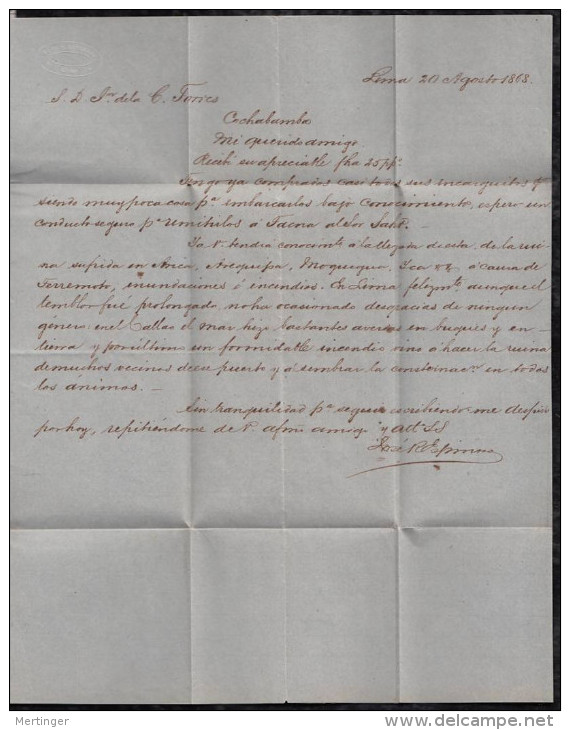 Lima 20 Agosto 1868.
S. D. Jn. de la C. Torres
Cochabamba
Mi querido amigo
Recibí su apreciable fha 25 pp.
Tengo ya comprados casi todos sus encarguitos y
siendo muy poca cosa pa. embarcarlos bajo conocimiento, espero un
conducto seguro pa. remitirlos á Tacna al Sor
Ya V. tendrá conocimto. á la llegada de esta, de la rui-
na sufrida en Arica, Arequipa, Moquegua, Ica &&. á causa de
Terremoto, inundaciones é incendios. En Lima felizmte. aunque el
temblor fué prolongado, no ha ocasionado desgracias de ningun
género; en el Callao el mar hizo bastantes averias en buques y en
tierra y por último un formidable incendio vino á hacer la ruina
de muchos vecinos de ese puerto y á sembrar la consternacn. en todos
los ánimos.
Sin tranquilidad pa. seguir escribiendo me despido
por hoy, repitiéndome de V. afmo. amigo y att. SS
José R Espinosa
Mertinger
delcampe.net